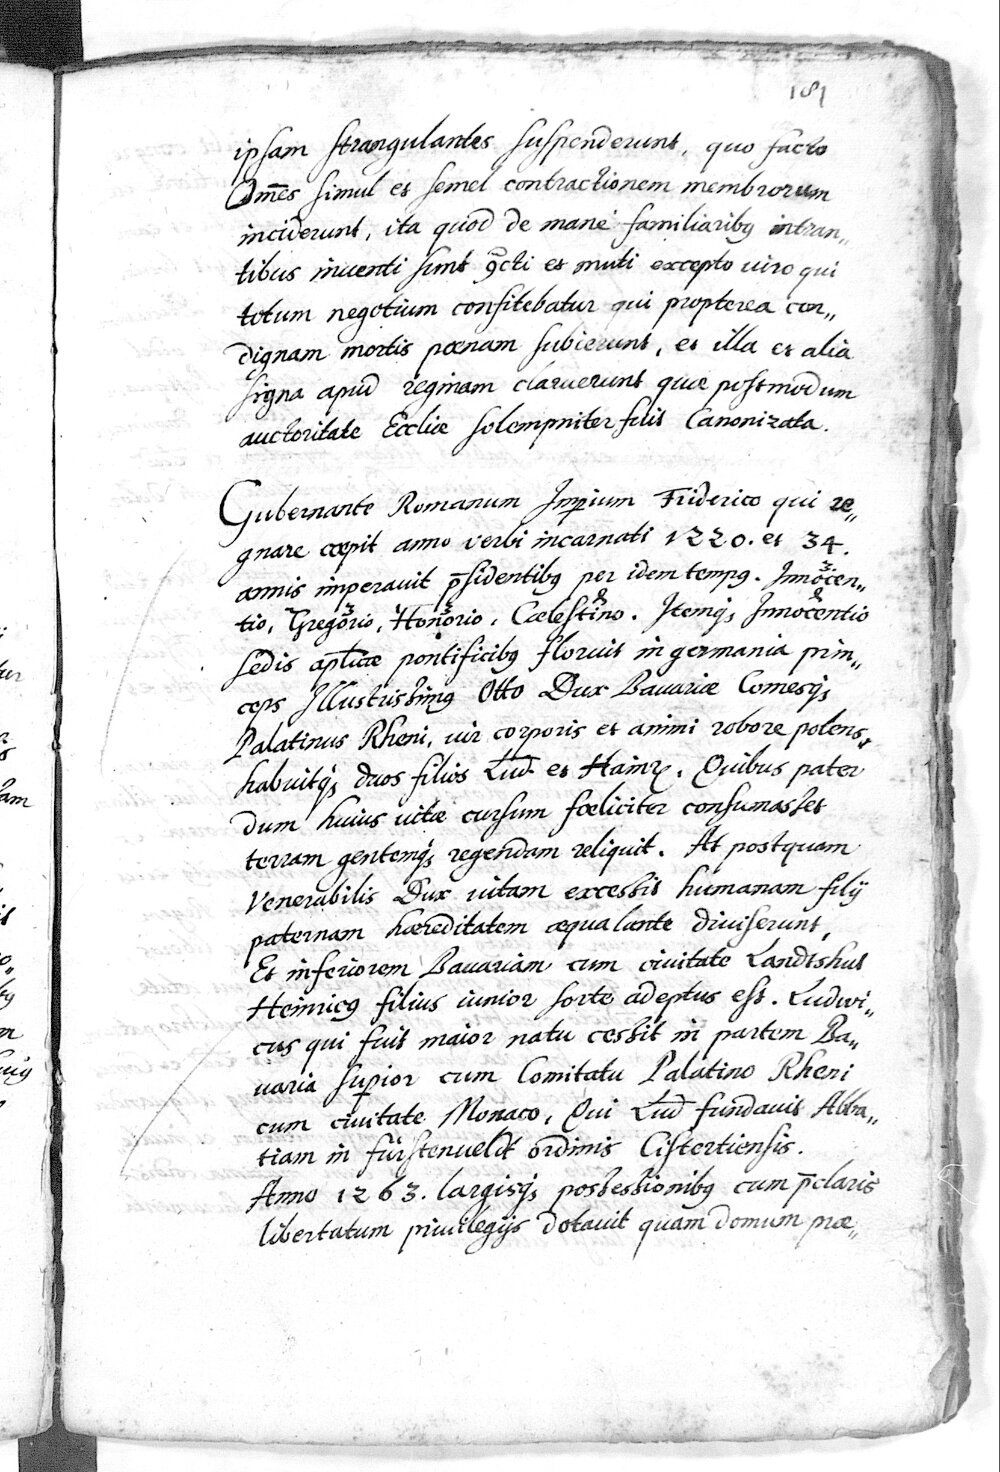 181
ipsam strangulantes suspenderunt, quo facto
Om̃es simul et semel contractionem membrorum
inciderunt, ita quod de mane familiaribꝰ intran„
tibus inuenti sunt ꝯ̃cti et muti excepto uiro qui
totum negotium confitebatur qui propterea con„
dignam mortis pœnam subierunt, et illa et alia
signa apud reginam claruerunt quæ postmodum
auctoritate Eccliæ solempniter fuit Canonizata.
Gubernante Romanum Imꝑium Friderico qui re„
gnare cœpit anno verbi incarnati 1220. et 34.
annis imperauit p̄sidentibꝰ per idem tempꝰ. Innocen„
tio, Gregorio, Honorio, Cælestino. Itemqꝫ Innocentio
sedis aplicæ pontificibꝰ floruit in germania prin„
ceps Illustrissimꝰ Otto Dux Bauariæ Comesqꝫ
Palatinus Rheni, uir corporis et animi robore polens,
habuitqꝫ duos filios Lud. et Hainꝝ. Quibus pater
dum huius uitæ cursum fœliciter consumasset
terram gentemqꝫ regendam reliquit. At postquam
Venerabilis Dux uitam excessit humanam filij
paternam hæreditatem æqua lante diuiserunt,
Et inferiorem Bauariam cum ciuitate Landtshut
Heinricꝰ filius iunior sorte adeptus est. Ludwi„
cus qui fuit maior natu cessit in partem Ba„
uaria suꝑior cum Comitatu Palatino Rheni
cum ciuitate Monaco, Qui Lud fundauit Abba„
tiam in fürstenueldt ordinis Cistertiensis.
Anno 1263. largisqꝫ possessionibꝰ cum p̄claris
libertatum priuilegijs dotauit quam domum præ„